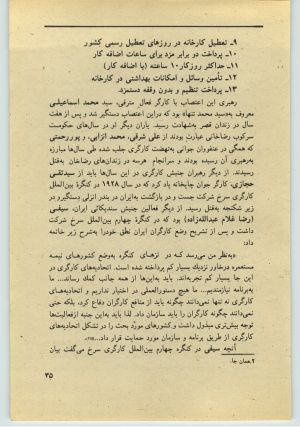 ۹ـ تعطیل کارخانه در روزهای تعطیل رسمی کشور
۱۰ـ پرداخت دو برابر مزد برای ساعات اضافه کار
۱۱ـ حداکثر روزکار ۱۰ ساعته (با اضافه کار)
۱۲ـ تأمین وسائل و امکانات بهداشتی در کارخانه
۱۳ـ پرداخت تنظیم و بدون وقفه دستمزد.
رهبری این اعتصاب با کارگر فعال مترقی، سید محمد اسماعیلی
معروف به«سید محمد تنها» بود که دراین اعتصاب دستگیر شد و پس از هفت
سال در زندان قصر به‌شهادت رسید. یاران دیگر او در سال‌های حکومت
سرکوب رضاخانی عبارت بودند از علی شرقی، محمد انزابی، و پور رحمتی
که همگی در عنفوان جوانی به‌نهضت کارگری جلب شده طی سال‌ها مبارزه
به‌رهبری آن رسیده بودند و سرانجام هرسه در زندان‌های رضاخان به‌قتل
رسیدند. از دیگر رهبران جنبش کارگری در این سال‌ها باید از سیدتقی
حجازی، کارگر جوان چاپخانه یاد کرد که در سال ۱۹۲۸ در کنگرهٔ بین‌الملل
کارگری سرخ شرکت جست و در بازگشت به‌ایران در بندر انزلی دستگیر و در
زیر شکنجه به‌قتل رسید. از دیگر فعالین جنبش سندیکائی ایران، سیفی
(رضا غلام عبدالله‌زاده) بود که در کنگرهٔ چهارم بین‌الملل کارگری شرکت
داشت و پس از تشریح وضع کارگران ایران نطق خودرا به‌شرح زیر خاتمه
داد:
«به‌نظر من می‌رسد کـه در نزهای کنگره به‌وضع کشورهای نیمه
مستعمره ودرخاور نزدیك بسیار کم پرداخته شده است. اتحادیه‌های کارگری در
این جا بسیار کم تجربه‌اند. باید به‌این‌ها از همه جانب کمك رساند... ما
به‌برنامه نیازمندیم... ما هیچ دستورالعملی در اختیار نداریم و اتحادیه‌های
کارگری نه تنها نمی‌دانند چگونه باید از منافع کارگران دفاع کرد، بلکه حتی
نمی‌دانند چگونه کارگران را باید سازمان داد. لذا باید به‌این جنبه ازفعالیت‌ها
توجه بیش‌تری مبذول داشت و کشورهای مورد بحث را در تشکل اتحادیه‌های
کارگری از طریق برنامه و سازمان مورد حمایت قرار داد...»
آنچه سیفی در کنگره چهارم بین‌الملل کارگری سرخ می‌گفت بیان
۲.همان جا.
۳۵